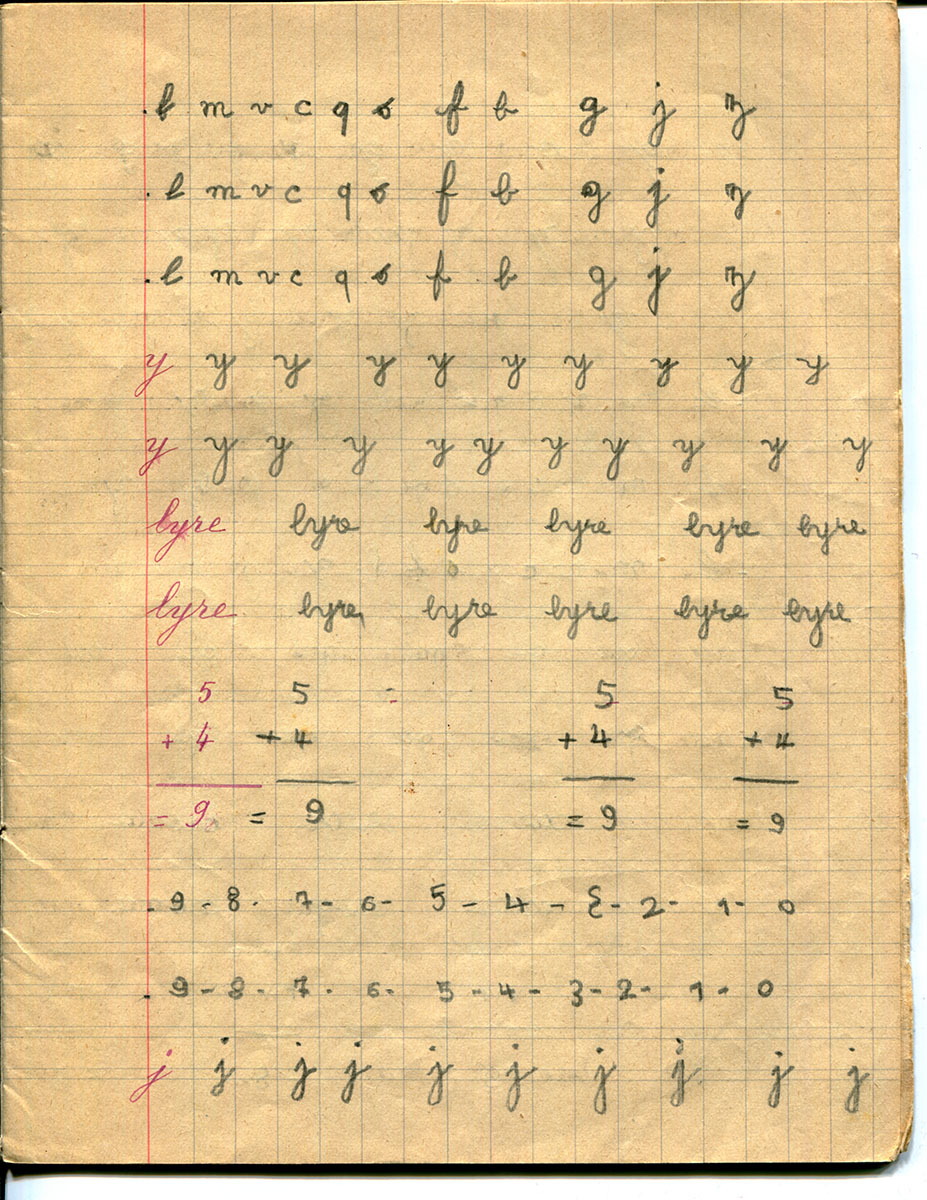 . l m v c q s f b g j z
. l m v c q s f b g j z
. l m v c q s f b g j z
y y y y y y y y y y
y y y y y y y y y y y
lyre lyre lyre lyre lyre lyre
lyre lyre lyre lyre lyre lyre
5 5 = 5 5
+ 4 + 4 + 4 + 4
= 9 = 9 = 9 = 9
. 9 - 8 - 7 - 6 - 5 - 4 - 3 - 2 - 1 - 0
. 9 - 8 - 7 - 6 - 5 - 4 - 3 - 2 - 1 - 0
j j j j j j j j j j